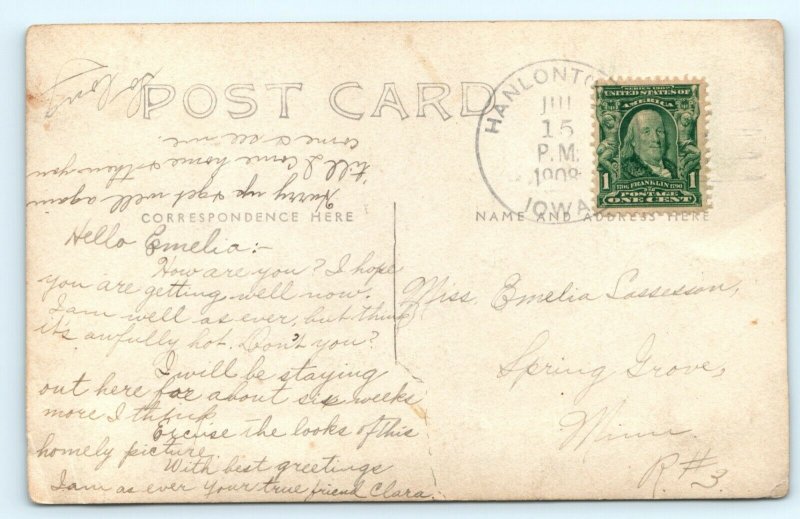 POST CARD
CORRESPONDENCE HERE
NAME AND ADDRESS HERE
HANLONTO
JUL
15
P.M.
1908
IOWA
SERIES 1902
UNITED STATES OF
AMERICA
1 1
1706 FRANKLIN 1790
POSTAGE
ONE CENT
Hello Emelia:-
How are you? I hope
you are getting well now.
I am well as ever, but think
it's awfully hot. Don't you?
I will be staying
out here for about six weeks
more I think
Excuse the looks of this
homely picture.
With best greetings
I am as ever your true friend Clara.
Hurry up & get well again
till I come home & then you
come & see me.
So long
Miss. Emelia
Spring Grove,
Minn.
R.#3.